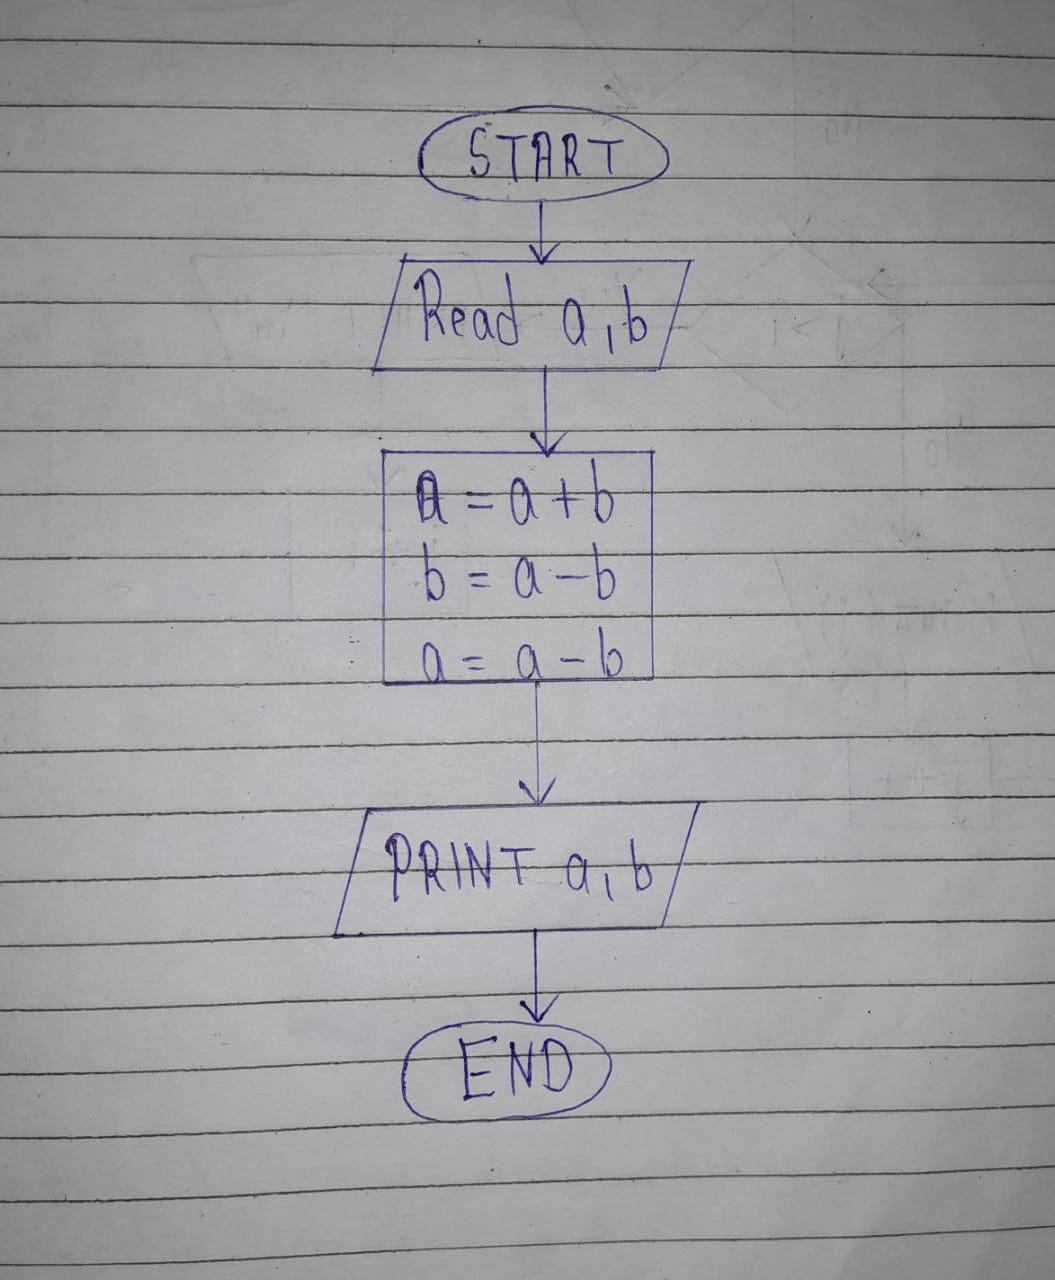 START
Read a, b
a = a + b
b = a - b
a = a - b
PRINT a, b
END